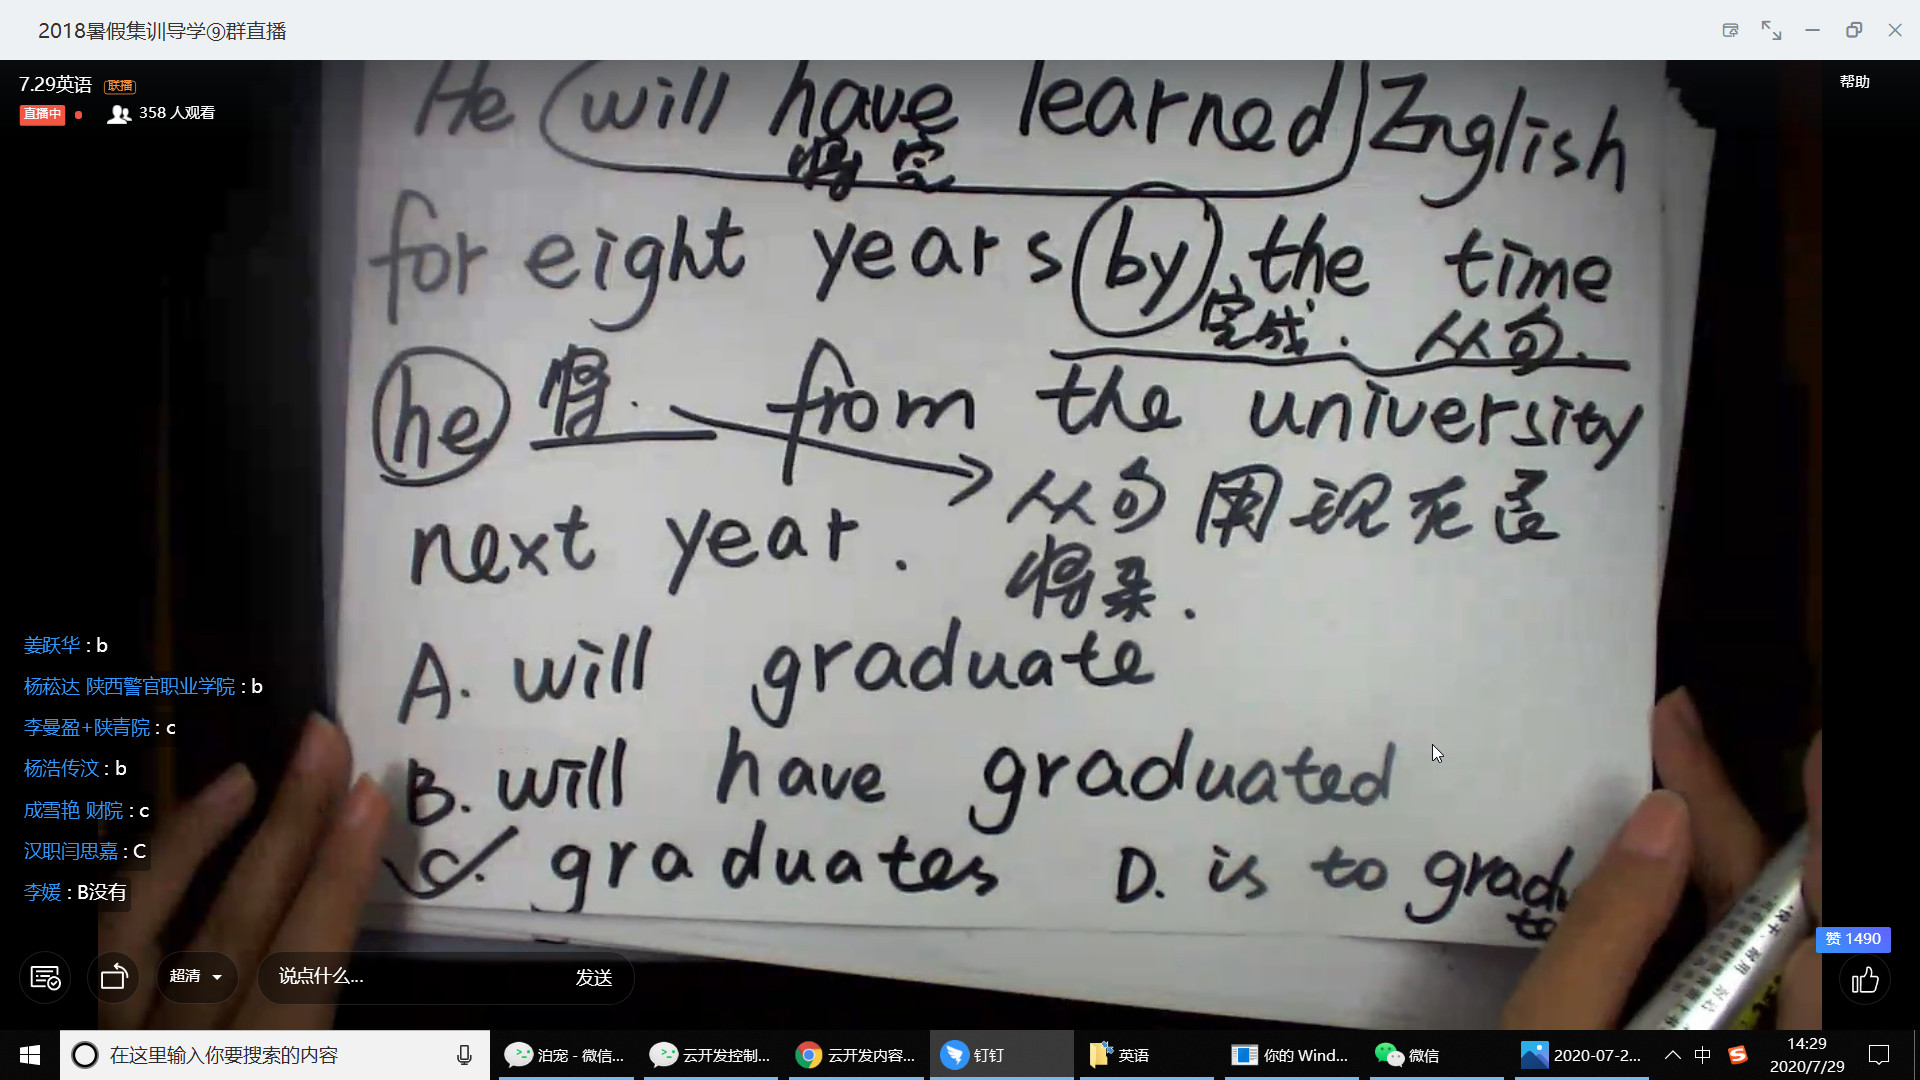 2018暑假集训导学⑨群直播
7.29英语 联播
直播中 358 人观看
帮助
He will have learned English
将 完
for eight years by the time
完成. 从句.
he 将. from the university
从句用现在表
next year. 将来.
A. will graduate
B. will have graduated
C. graduates D. is to gradu
te
姜跃华 : b
杨菘达 陕西警官职业学院 : b
李曼盈+陕青院 : c
杨浩传汶 : b
成雪艳 财院 : c
汉职闫思嘉 : C
李媛 : B没有
赞 1490
超清 说点什么... 发送
在这里输入你要搜索的内容 泊宠 - 微信... 云开发控制... 云开发内容... 钉钉 英语 你的 Wind... 微信 2020-07-2... 中 14:29
2020/7/29